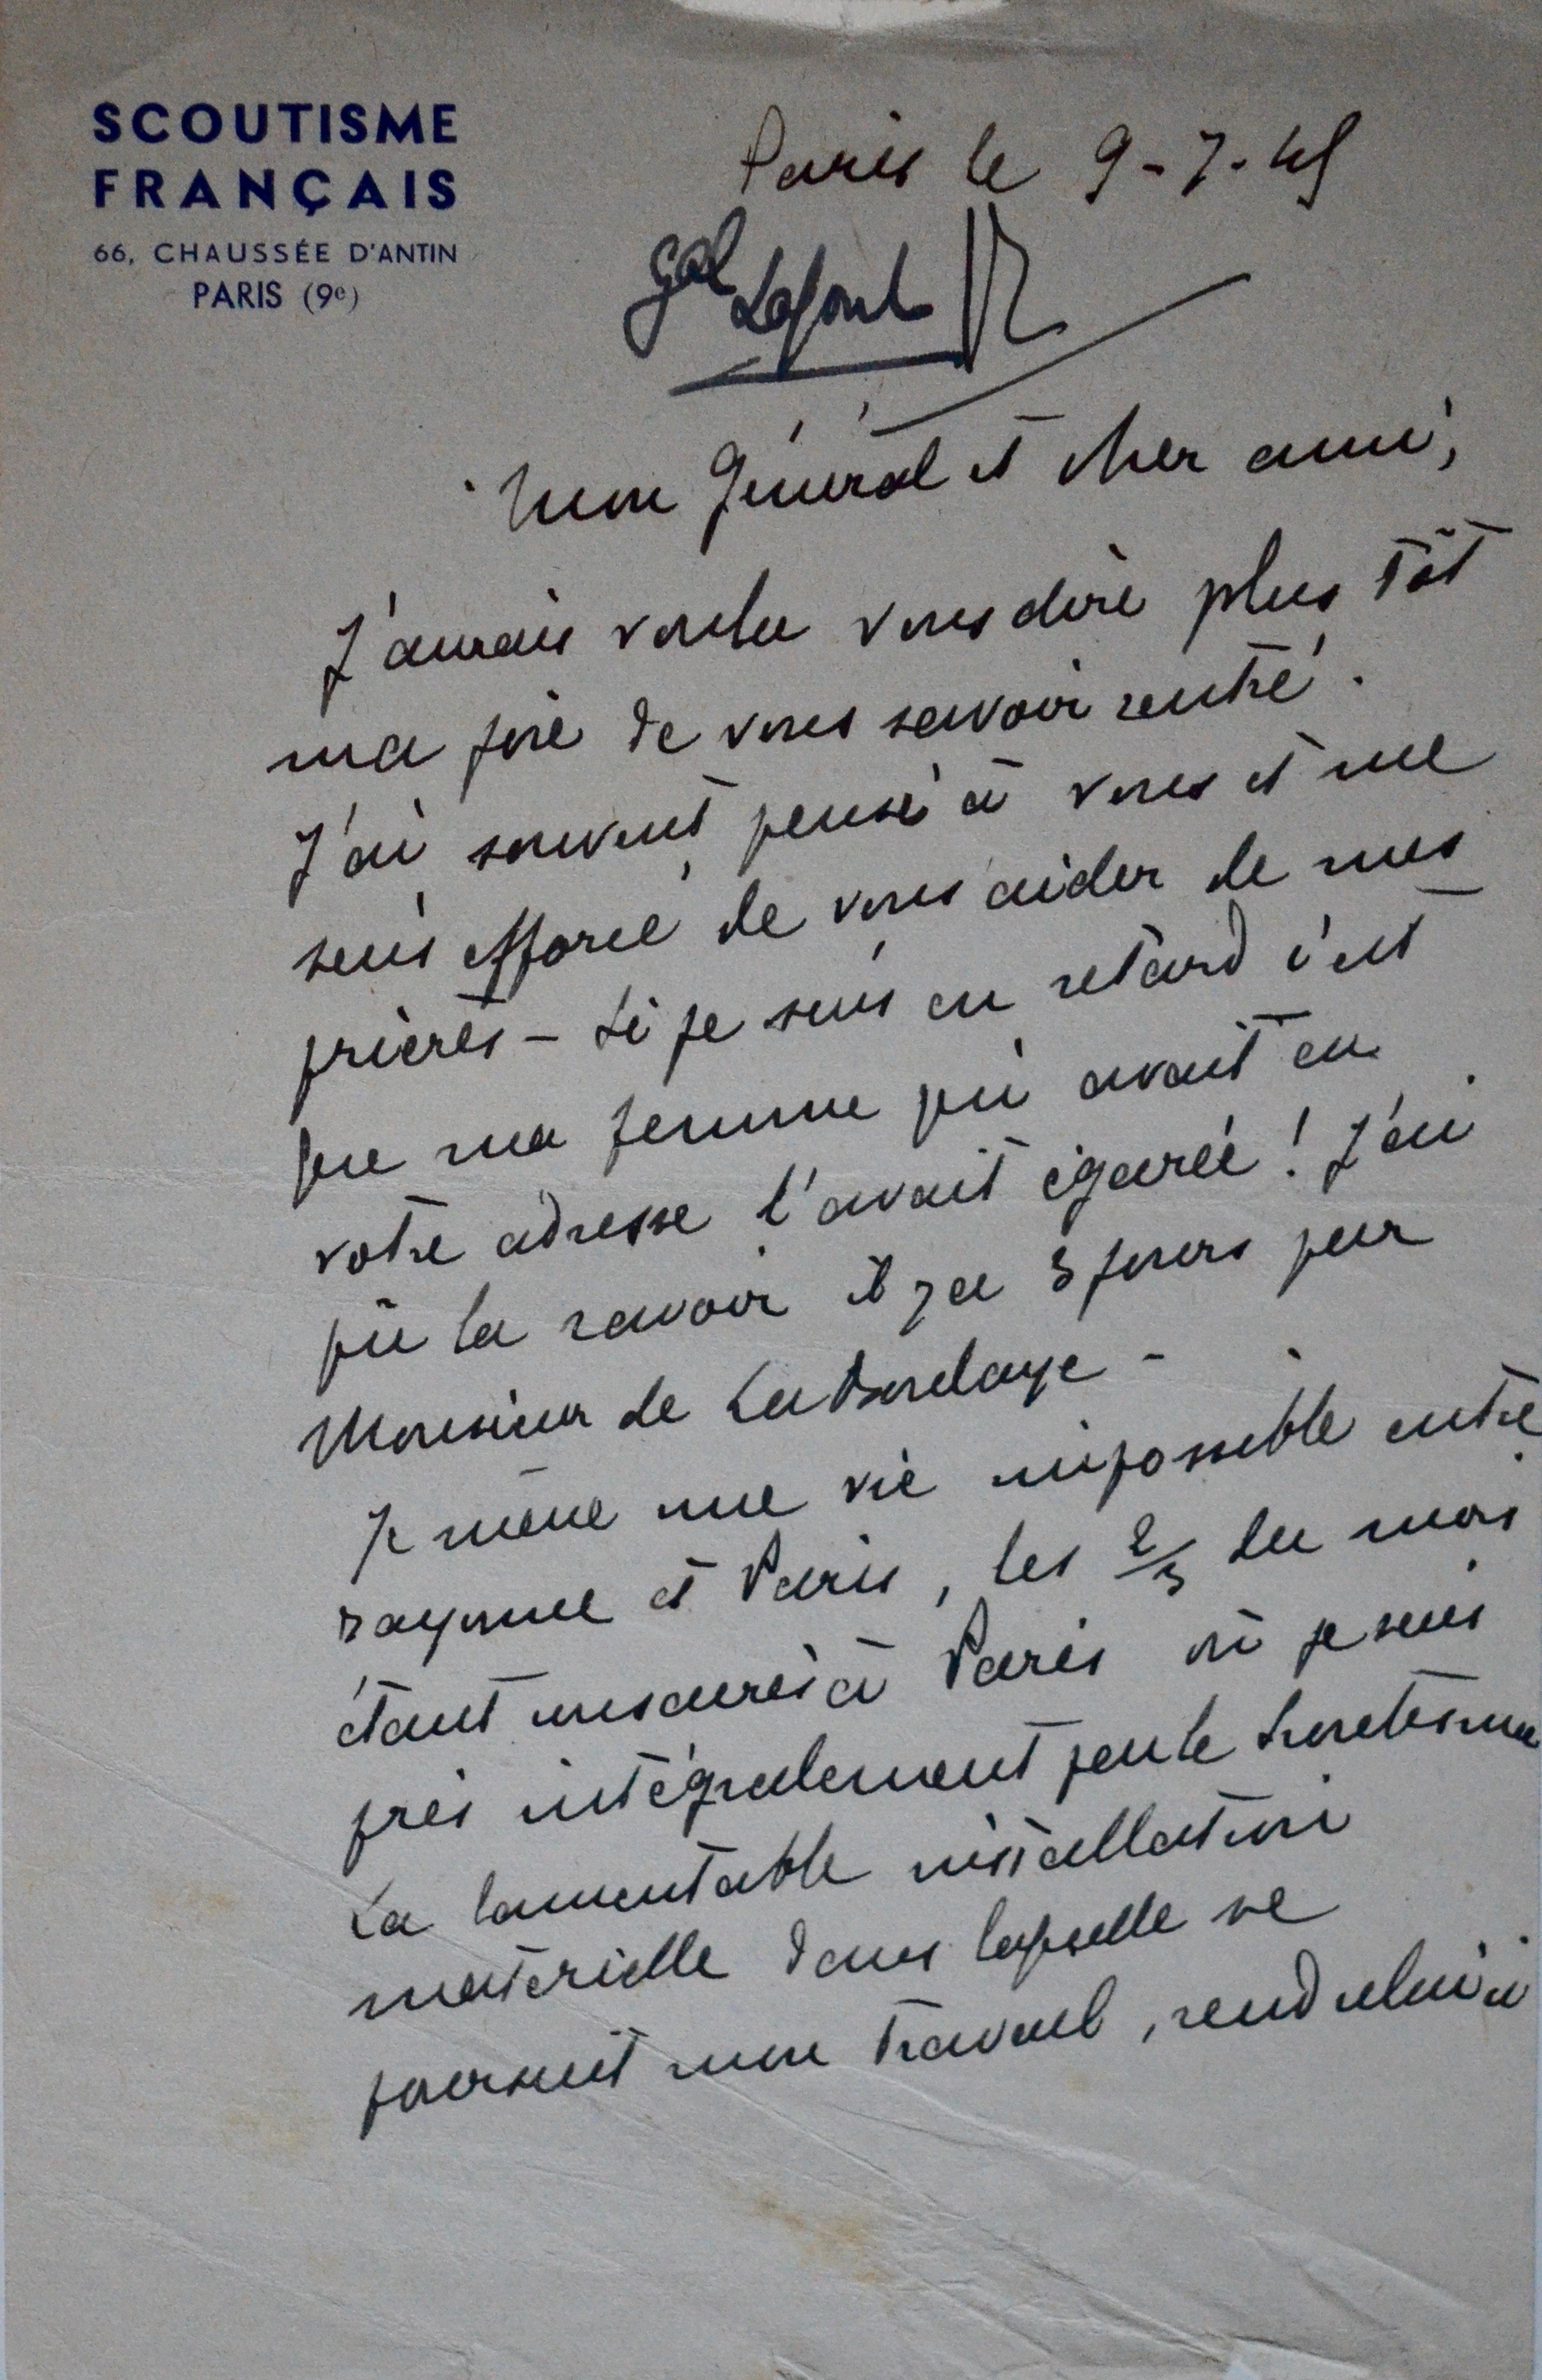 SCOUTISME
FRANÇAIS
66, CHAUSSÉE D'ANTIN
PARIS (9e)
Paris le 9-7-45
Gal Lafont R
Mon Général et cher ami,
J'aurais voulu vous dire plus tôt
ma joie de vous savoir rentré.
J'ai souvent pensé à vous et me
suis efforcé de vous aider de mes
prières - Si je suis en retard c'est
que ma femme qui avait eu
votre adresse l'avait égarée ! J'ai
pu la ravoir il y a 3 jours par
Monsieur de La Bourdonnaye -
Je mène une vie impossible entre
et Paris, les 2/3 du mois
étant consacrés à Paris où je suis
pris intégralement par le Scoutisme
La lamentable installation
matérielle dans laquelle se
poursuit mon travail, rend celui ci